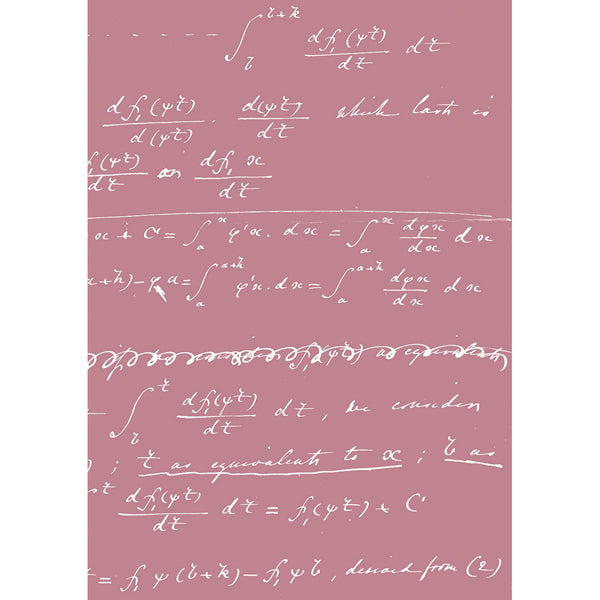 ∫_b^{b+k} df₁(ψt)/dt dt
df₁(ψt)/d(ψt) . d(ψt)/dt which last is
f₁(ψt)/dt or df₁x/dt
x + C = ∫_a^x φ'x. dx = ∫_a^x dφx/dx dx
a+h) − φa = ∫_a^{a+h} φ'x. dx = ∫_a^{a+h} dφx/dx dx
f₁(ψt) as equivalent
∫_b^t df₁(ψt)/dt dt, we consider
); t as equivalent to x; b as
t df₁(ψt)/dt dt = f₁(ψt) + C
t = f₁ψ(b+k) − f₁ψb, derived from (2)